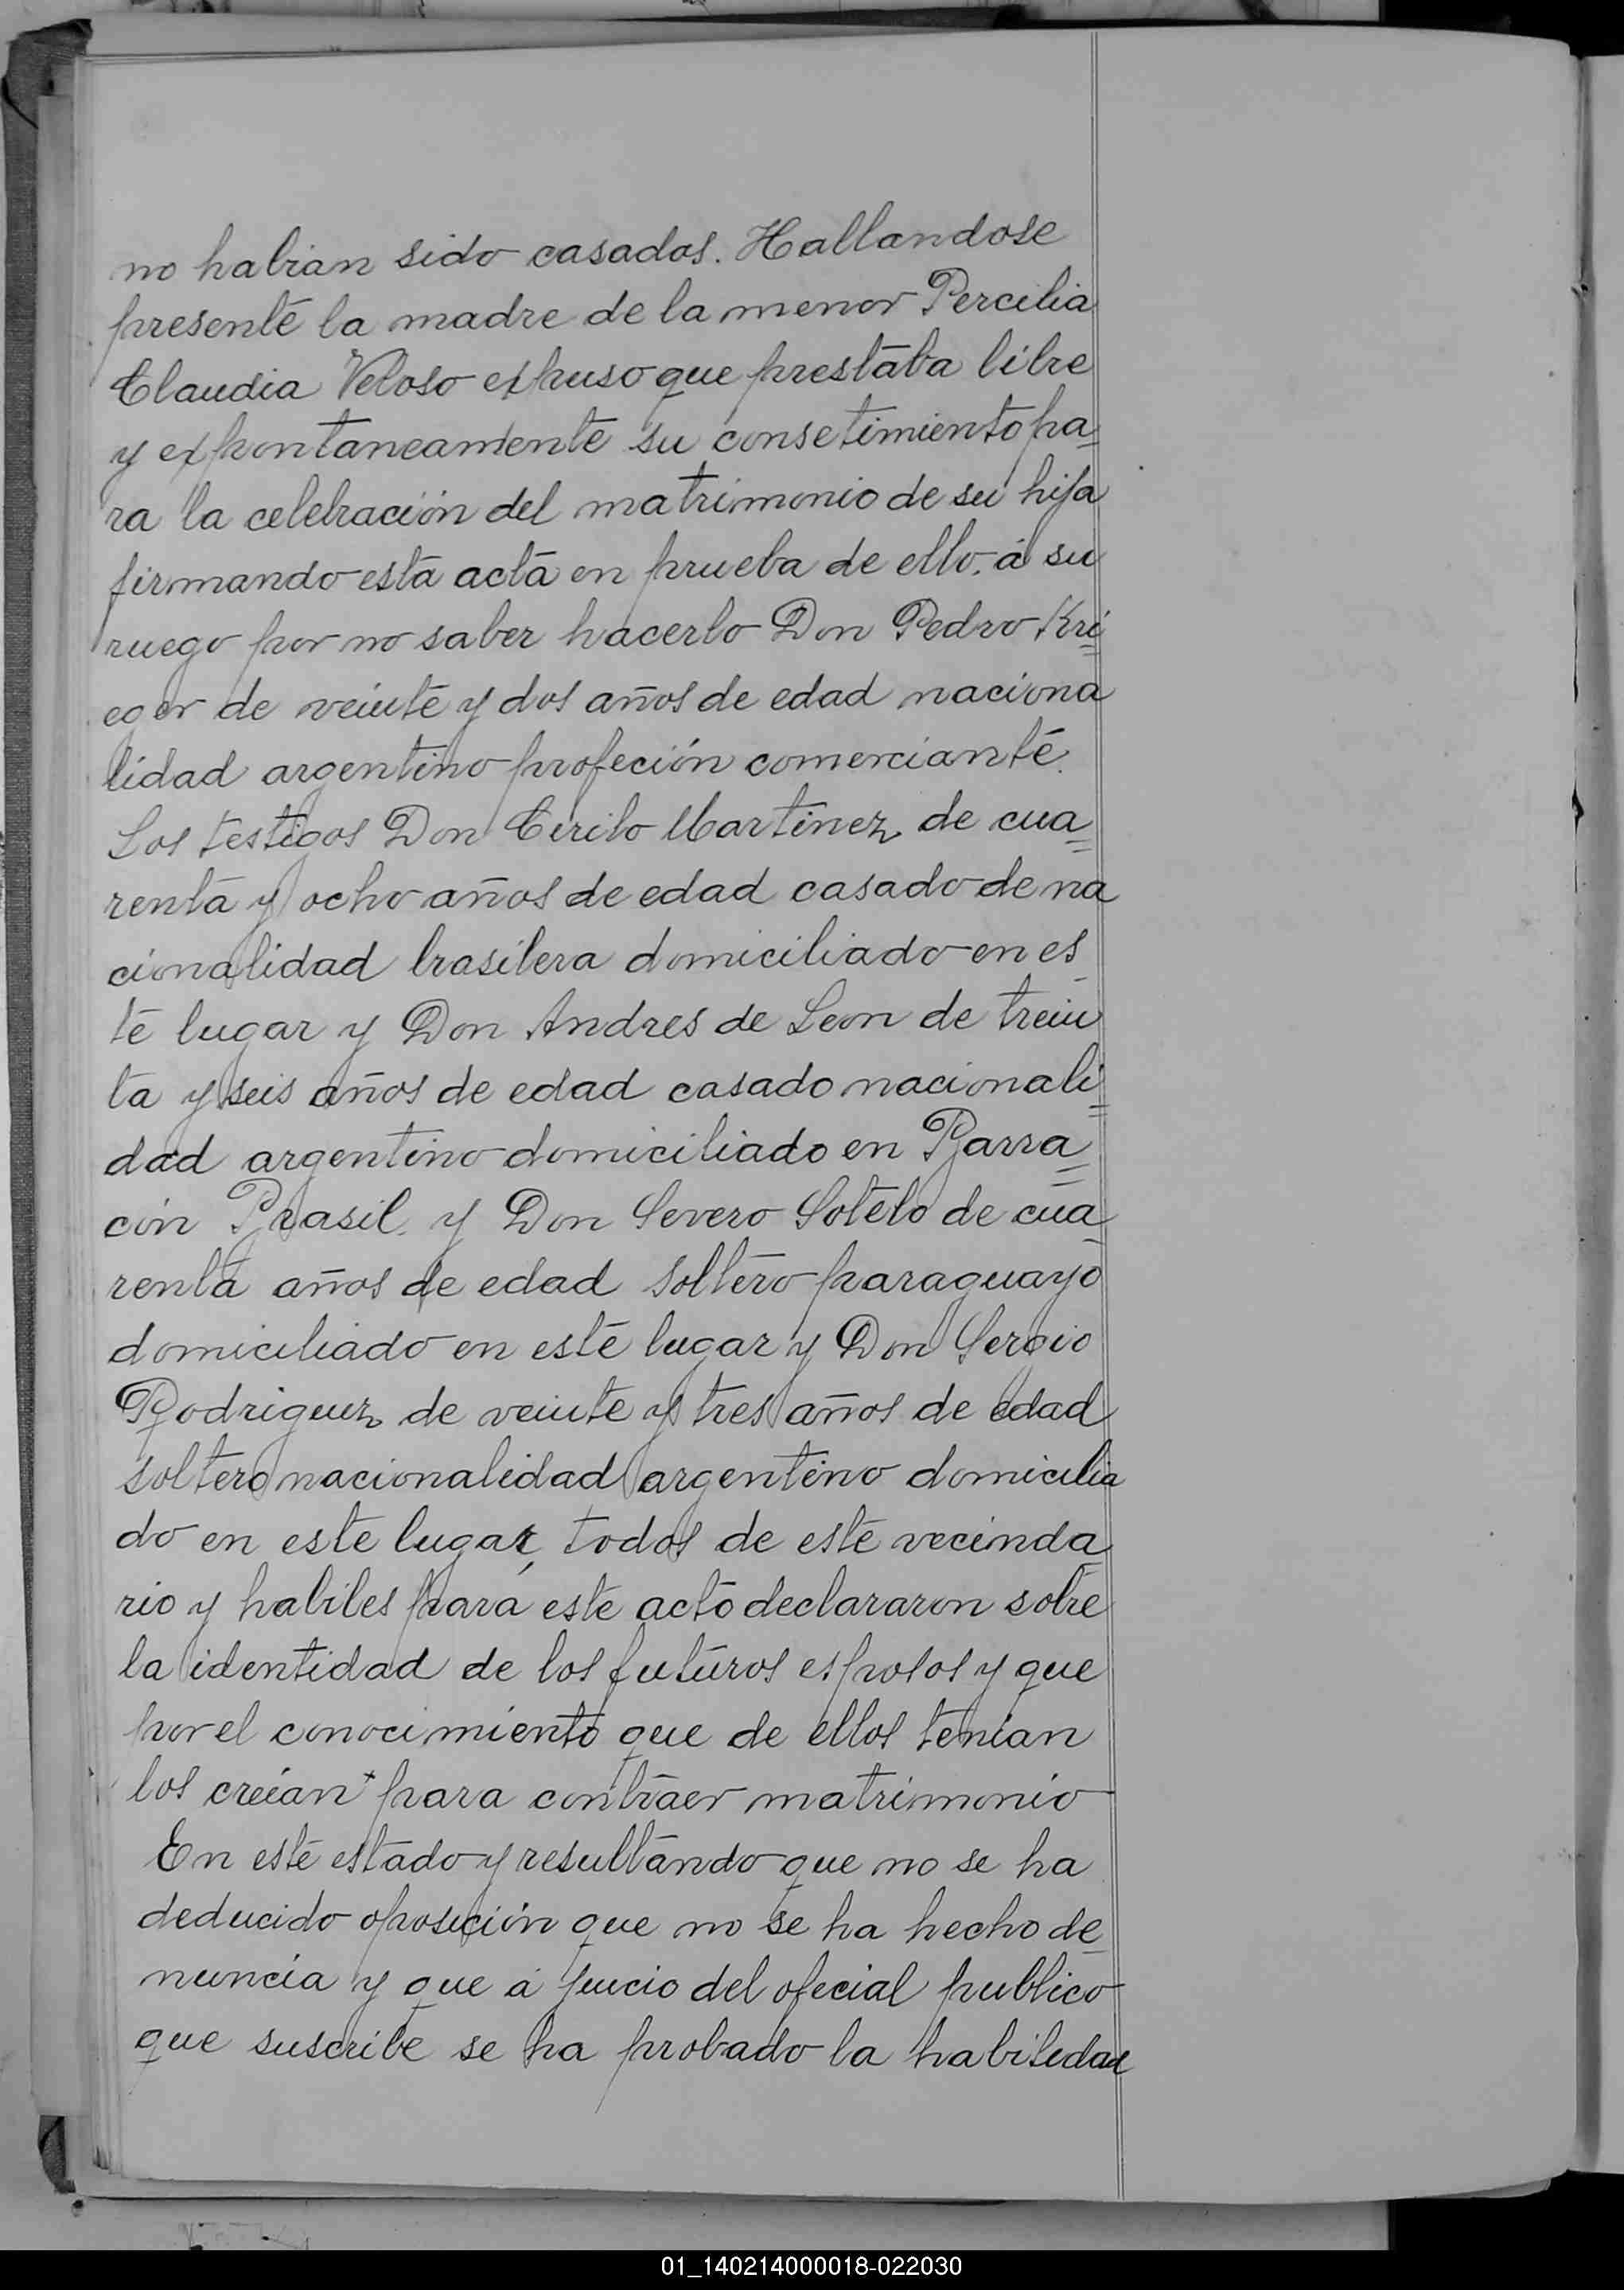 no habian sido casados. Hallandose
presente la madre de la menor Percilia
Claudia Veloso expuso que prestaba libre
y expontaneamente su consetimiento pa=
ra la celebración del matrimonio de su hija
firmando esta acta en prueba de ello. á su
ruego por no saber hacerlo Don Pedro Kri=
eger de veinte y dos años de edad naciona
lidad argentino profeción comerciante.
Los testigos Don Cirilo Martinez de cua=
renta y ocho años de edad casado de na
cionalidad brasilera domiciliado en es
te lugar y Don Andres de Leon de trein
ta y seis años de edad casado nacionali=
dad argentino domiciliado en Barra=
cón Brasil. y Don Severo Sotelo de cua
renta años de edad soltero paraguayo
domiciliado en este lugar y Don Sergio
Rodriguez de veinte y tres años de edad
soltero nacionalidad argentino domicilia
do en este lugar, todos de este vecinda
rio y habiles para este acto declararon sobre
la identidad de los futuros esposos y que
por el conocimiento que de ellos tenian
los creian + para contraer matrimonio
En este estado y resultando que no se ha
deducido oposición que no se ha hecho de
nuncia y que á juicio del oficial publico
que suscribe se ha probado la habilidad
01_140214000018-022030